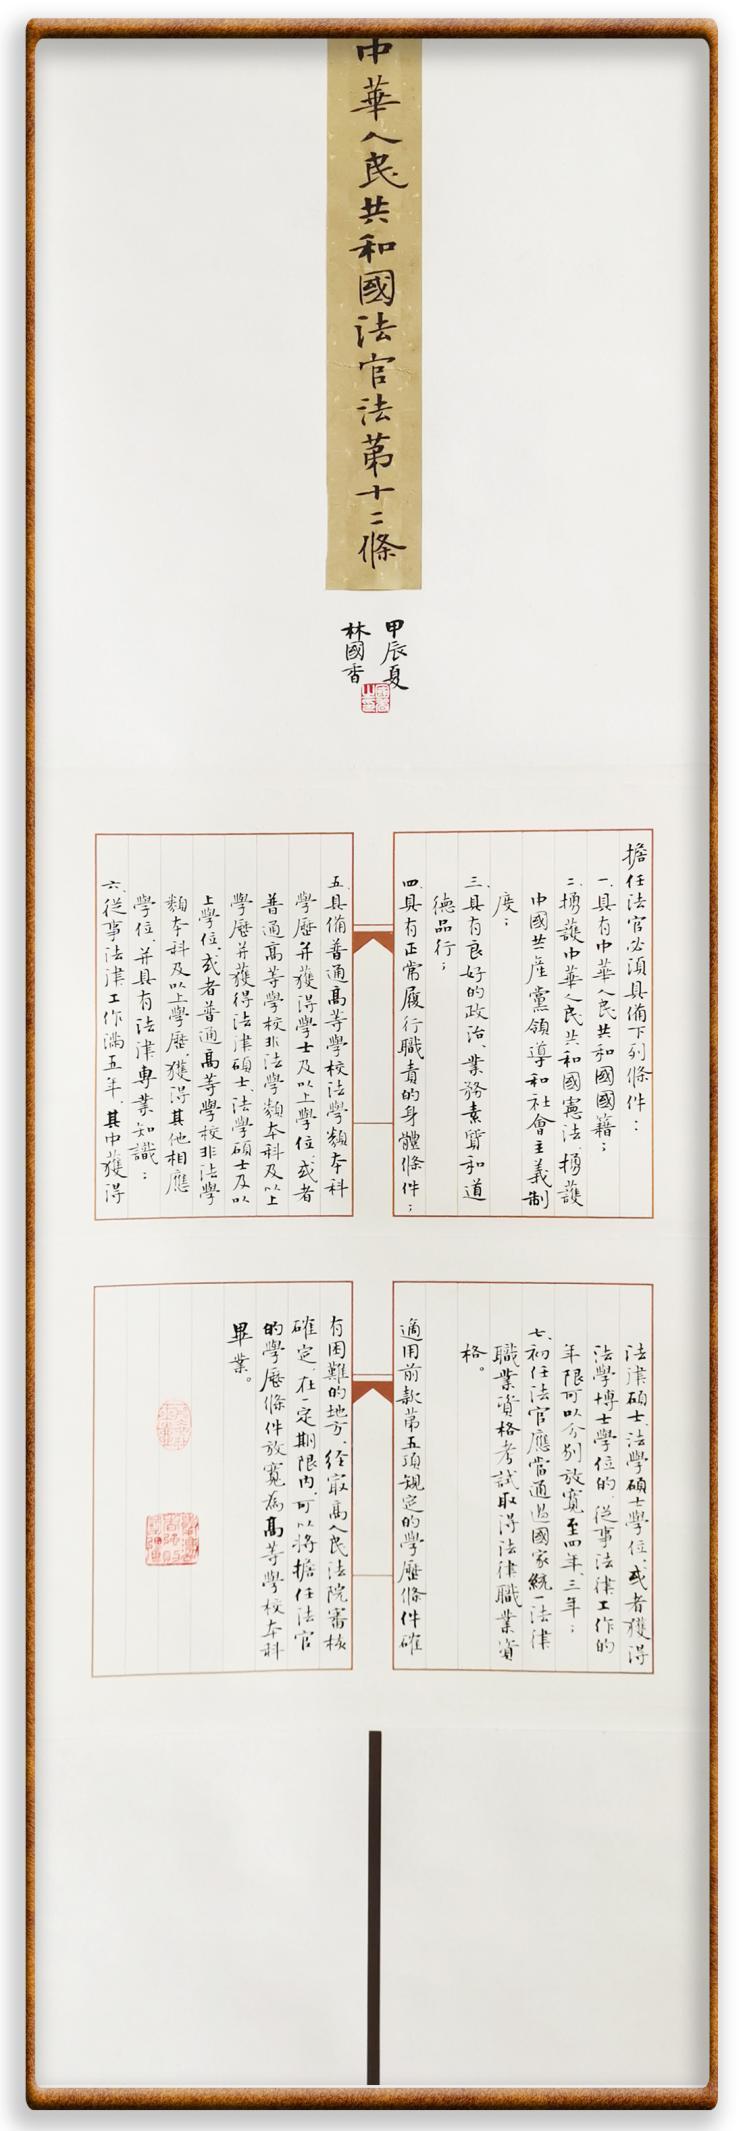 中華人民共和國法官法第十二條
甲辰夏
林國香
擔任法官必須具備下列條件：
一、具有中華人民共和國國籍；
二、擁護中華人民共和國憲法，擁護
中國共産黨領導和社會主義制
度；
三、具有良好的政治、業務素質和道
德品行；
四、具有正常履行職責的身體條件；
五、具備普通高等學校法學類本科
學歷并獲得學士及以上學位，或者
普通高等學校非法學類本科及以上
學歷并獲得法律碩士、法學碩士及以
上學位，或者普通高等學校非法學
類本科及以上學歷，獲得其他相應
學位，并具有法律專業知識；
六、從事法律工作滿五年，其中獲得
法律碩士、法學碩士學位，或者獲得
法學博士學位的，從事法律工作的
年限可以分别放寬至四年、三年；
七、初任法官應當通過國家統一法律
職業資格考試取得法律職業資
格。
適用前款第五項規定的學歷條件確
有困難的地方，經最高人民法院審核
確定，在一定期限内，可以將擔任法官
的學歷條件放寬爲高等學校本科
畢業。